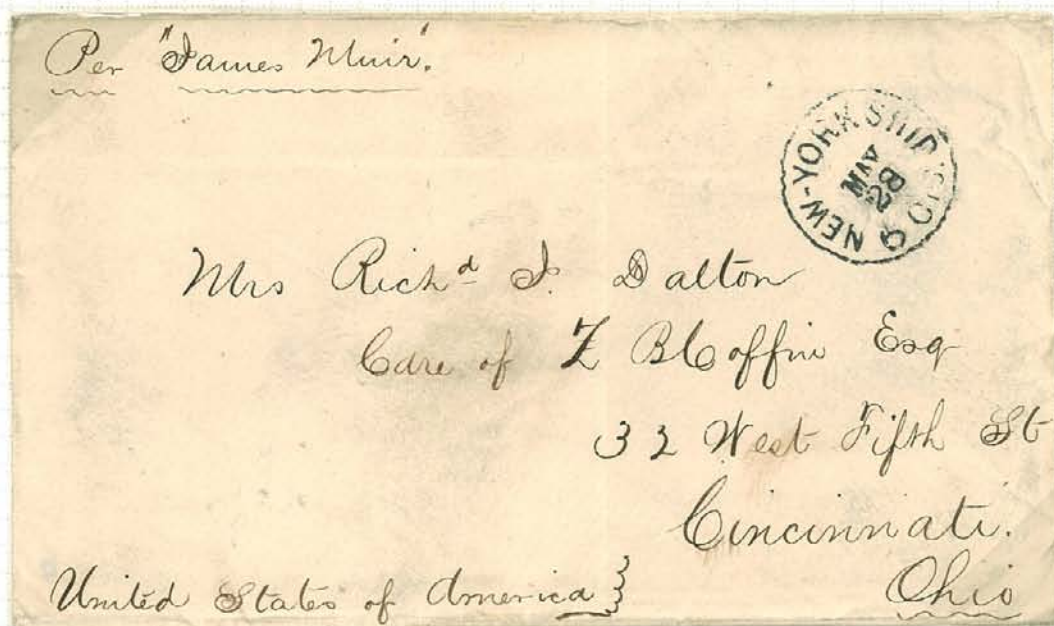 Per "James Muir".
NEW-YORK SHIP
MAY
28
6 CTS
Mrs Rich^d J. Dalton
Care of Z B Coffin Esq
32 West Fifth St
Cincinnati.
United States of America} Ohio